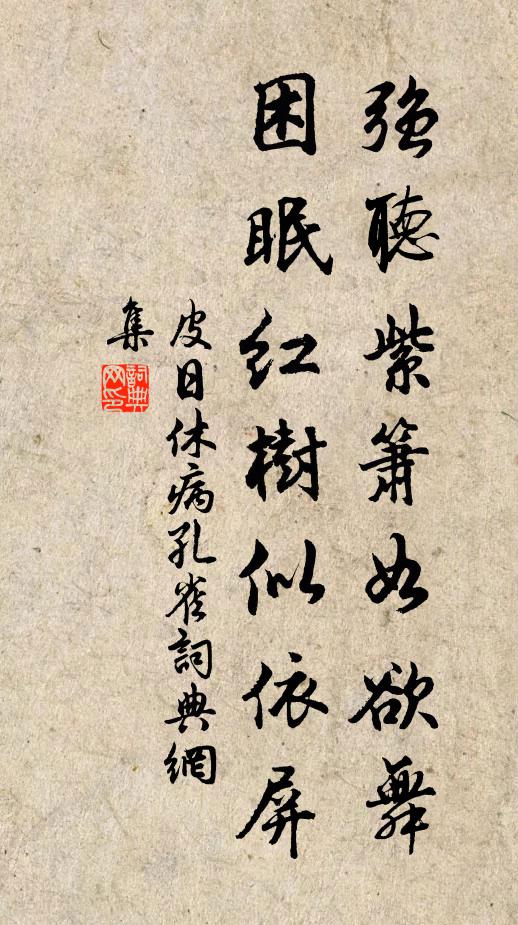 強聽紫簫如欲舞
困眠紅樹似依屏
皮日休病孔雀詞典網
集
詞典
网印